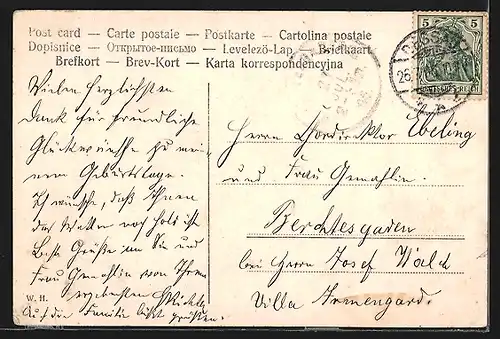 Post card — Carte postale — Postkarte — Cartolina postale
Dopisnice — Открытое-письмо — Levelező-Lap — Briefkaart
Brefkort — Brev-Kort — Karta korrespondencyjna
5 5
DEUTSCHES REICH
Vielen herzlichsten
Dank für freundliche
Glückwünsche zu mei-
nem Geburtstage.
Ich wünsche, daß Ihnen
das Wetter noch hold ist
Beste Grüße an Sie und
Frau Gemahlin von Ihrem
ergebensten
Auf die Familie läßt grüßen.
W. H.
Herrn Ebeling
und Frau Gemahlin.
Berchtesgaden
bei Herrn Josef Wald
Villa Irmengard.